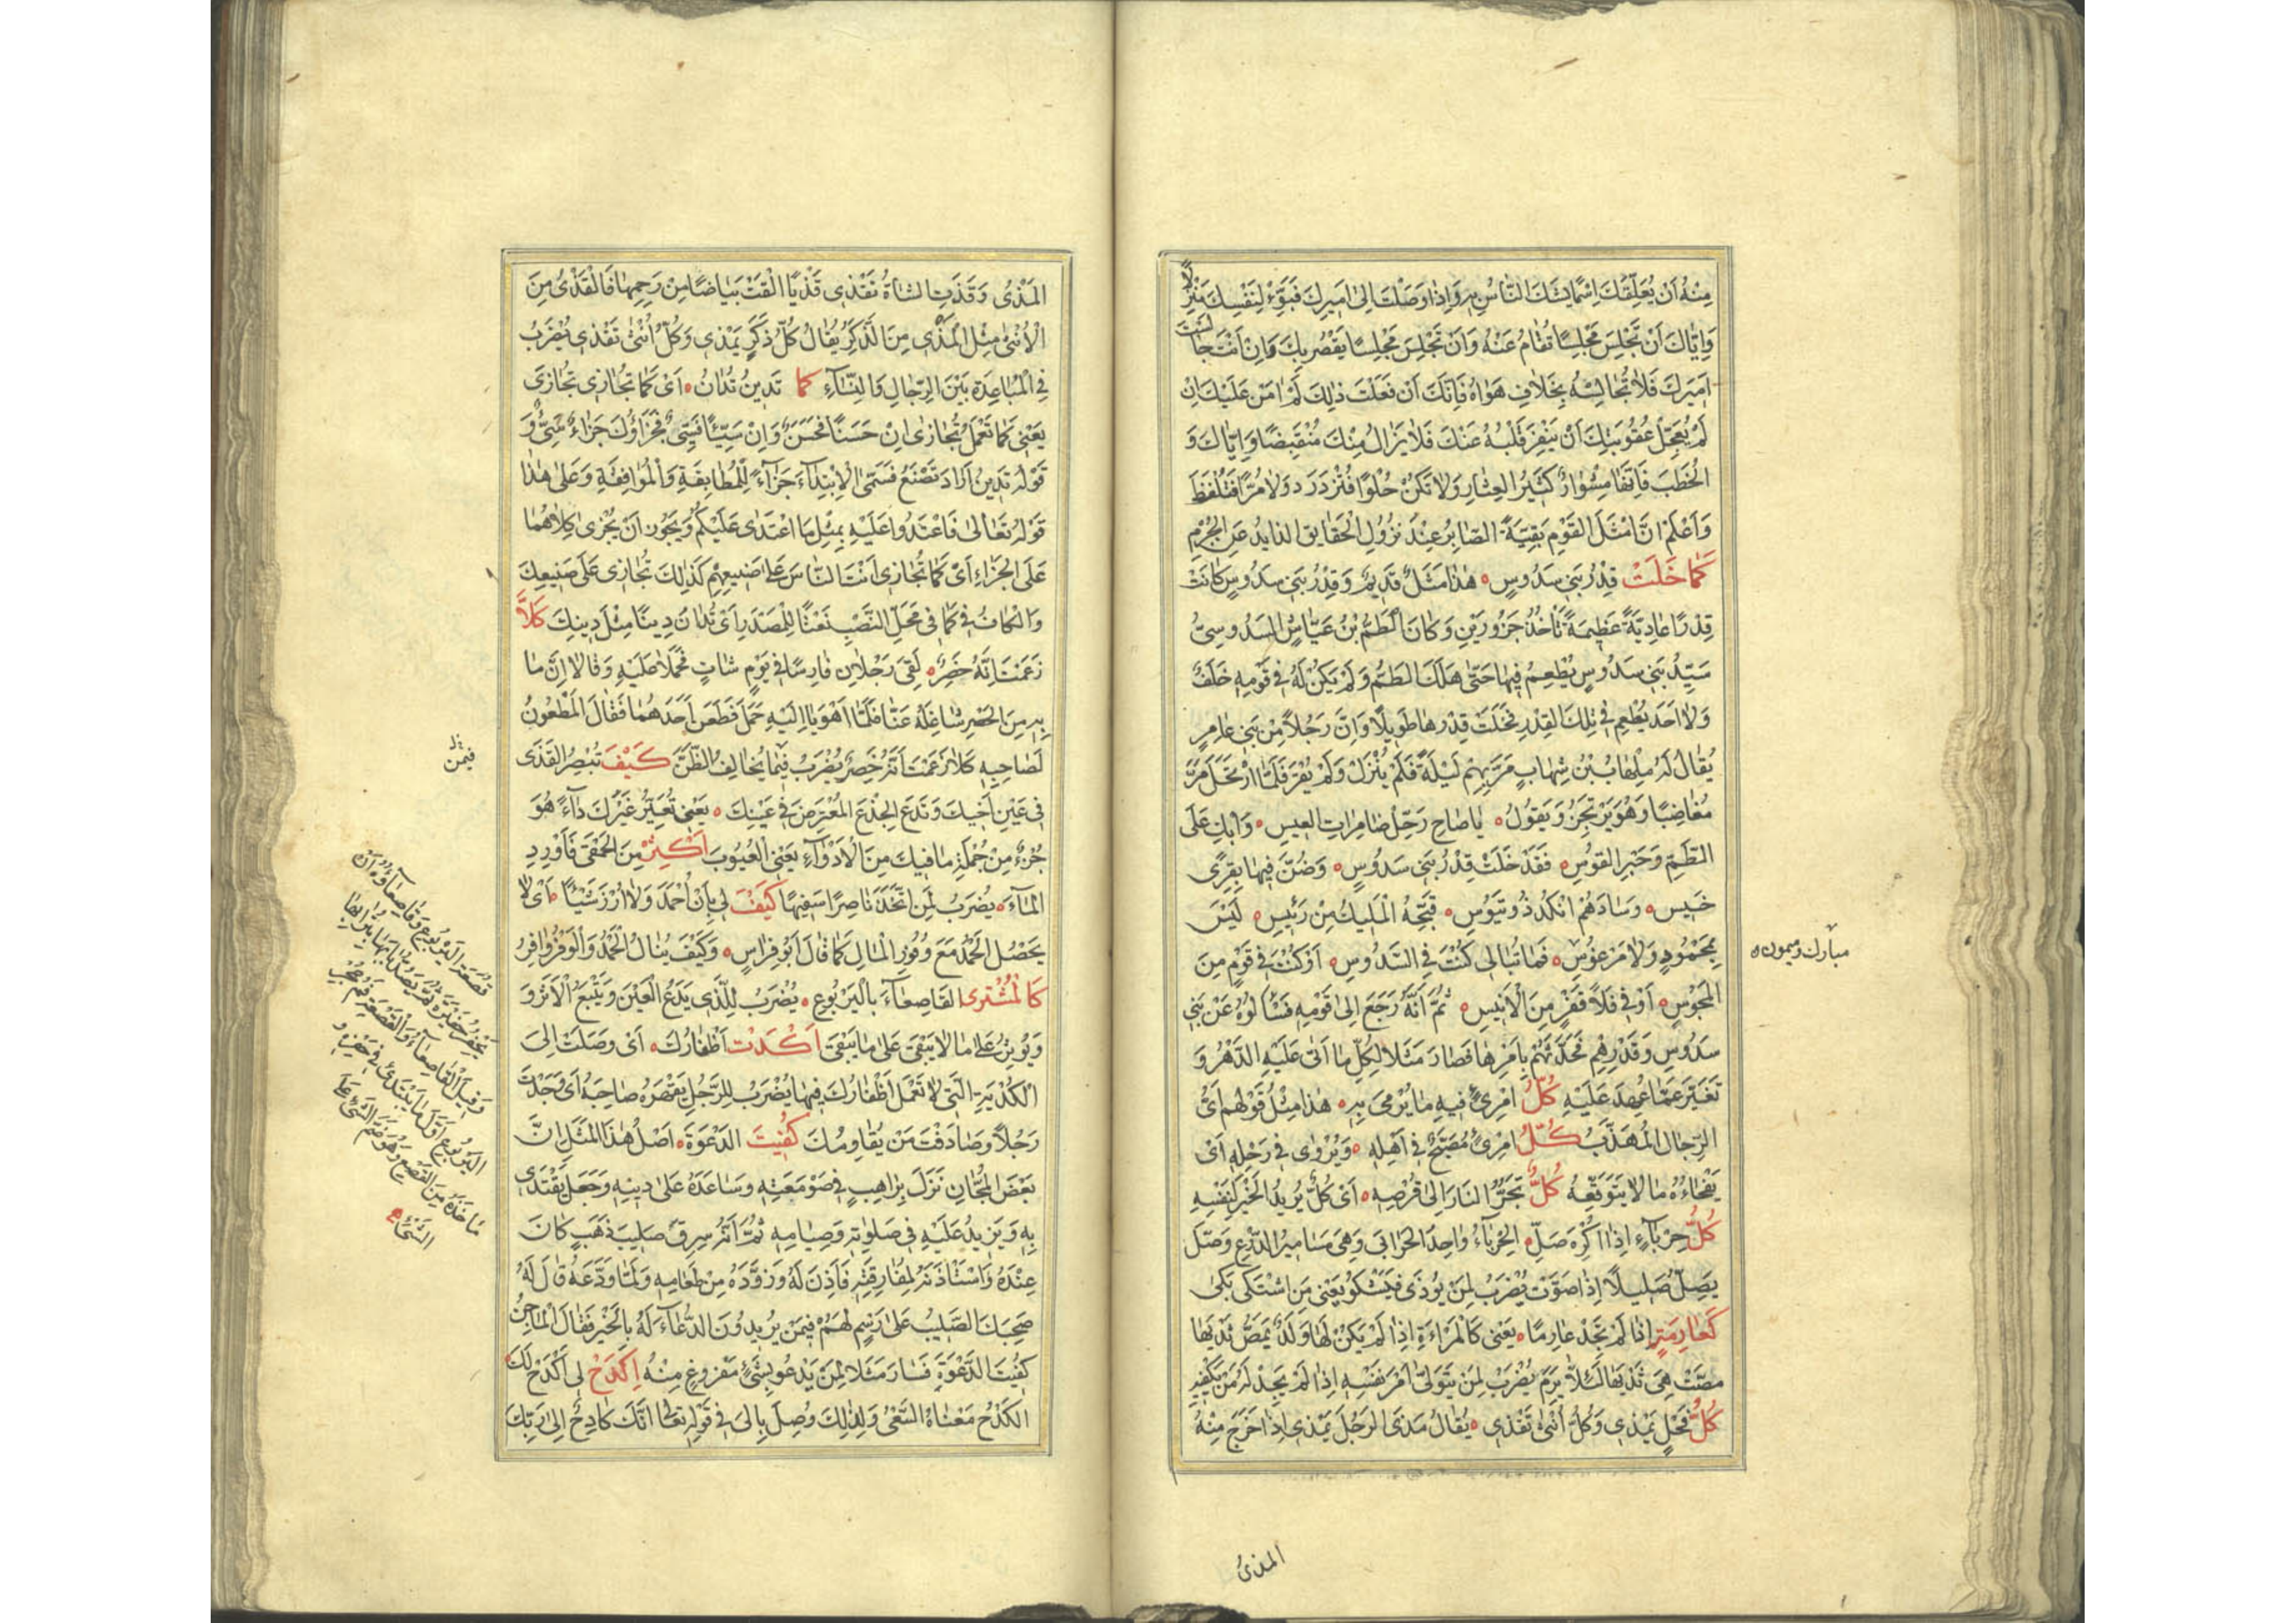 مِنْهُ اَنْ يُعَلِّقُكَ اِسْمًا يَشْنَكَ النَّاسُ بِهِ وَاِذَا وَصَلْتَ اِلٰى اَمِيرِكَ فَبَوِّءْ لِنَفْسِكَ مَنْزِلًا
وَاِيَّاكَ اَنْ تَجْلِسَ مَجْلِسًا تُقَامُ عَنْهُ وَاَنْ تَجْلِسَ مَجْلِسًا يَقْصُرُ بِكَ وَاِنْ اَنْتَ جَالَسْتَ
اَمِيرَكَ فَلَا تُجَالِسْهُ بِخِلَافِ هَوَاهُ فَاِنَّكَ اَنْ فَعَلْتَ ذٰلِكَ لَمْ اٰمَنْ عَلَيْكَ اِنْ
لَمْ يُعَجِّلْ عُقُوبَتَكَ اَنْ يَنْفِرَ قَلْبُهُ عَنْكَ فَلَا يَزَالُ مِنْكَ مُنْقَبِضًا وَاِيَّاكَ وَ
الْخُطَبَ فَاِنَّهَا مِشْوَارٌ كَثِيرُ الْعِثَارِ وَلَا تَكُنْ حُلْوًا فَتُزْدَرَدَ وَلَا مُرًّا فَتُلْفَظَ
وَاَعْلَمْ اَنَّ اَمْثَلَ الْقَوْمِ بَقِيَّةً الصَّابِرُ عِنْدَ نُزُولِ الْحَقَايِقِ الذايدُ عَنِ الْحُرَمِ
كَمَا خَلَتْ قِدْرُ بَنِى سَدُوسٍ هٰذَا مَثَلٌ قَدِيمٌ وَقِدْرُ بَنِى سَدُوسٍ كَانَتْ
قِدْرًا عَادِيَّةً عَظِيمَةً تَأْخُذُ جَزُورَيْنِ وَكَانَ الطَّمُّ بْنُ عَيَّاشٍ السَّدُوسِىُّ
سَيِّدُ بَنِى سَدُوسٍ يُطْعِمُ فِيهَا حَتّٰى هَلَكَ الطَّمُّ وَلَمْ يَكُنْ لَهُ فِى قَوْمِهِ خَلَفٌ
وَلَا اَحَدٌ يُطْعِمُ فِى تِلْكَ الْقِدْرِ فَخَلَتْ قِدْرُهَا طَوِيلًا وَاِنَّ رَجُلًا مِنْ بَنِى عَامِرٍ
يُقَالُ لَهُ مُلْهَابُ بْنُ شِهَابٍ مَرَّ بِهِمْ لَيْلَةً فَلَمْ يُنْزَلْ وَلَمْ يُقْرَ فَلَمَّا ارْتَحَلَ مَرَّ
مُغَاضِبًا وَهُوَ يَرْتَجِزُ وَيَقُولُ يَا صَاحِ رَحِّلْ ضَامِرَاتِ الْعِيسِ وَابْكِ عَلَى
الطَّمِّ وَحَبْرِ الْقَوْسِ فَقَدْ خَلَتْ قِدْرُ بَنِى سَدُوسٍ وَضُنَّ فِيهَا بِقِرًى
خَسِيسٍ وَسَادَهُمْ اَنْكَدُ ذُو تُيُوسِ قَبَّحَهُ الْمَلِيكُ مِنْ رَئِيسٍ لَيْسَ
بِمَحْمُودٍ وَلَا مَرْغُوسٍ فَمَا تُبَالِى كُنْتَ فِى السَّدُوسِ اَوْ كُنْتَ فِى قَوْمٍ مِنَ
الْمَجُوسِ اَوْ فِى فَلًا قَفْرٍ مِنَ الْاَنِيسِ ثُمَّ اَنَّهُ رَجَعَ اِلٰى قَوْمِهِ فَسَأَلُوهُ عَنْ بَنِى
سَدُوسٍ وَقِدْرِهِمْ فَحَدَّثَهُمْ بِاَمْرِهَا فَصَارَ مَثَلًا لِكُلِّ مَا اَتٰى عَلَيْهِ الدَّهْرُ وَ
تَغَيَّرَ عَمَّا عُهِدَ عَلَيْهِ كُلُّ امْرِئٍ فِيهِ مَا يُرْمٰى بِهِ هٰذَا مِثْلُ قَوْلِهِمْ اَىُّ
الرِّجَالِ الْمُهَذَّبُ كُلُّ امْرِئٍ مُصَبَّحٌ فِى اَهْلِهِ وَيُرْوٰى فِى رَحْلِهِ اَىْ
يَفْجَاءُهُ مَا لَا يَتَوَقَّعُهُ كُلٌّ يَجُرُّ النَّارَ اِلٰى قُرْصِهِ اَىْ كُلٌّ يُرِيدُ الْخَيْرَ لِنَفْسِهِ
كُلُّ حِرْبَآءٍ اِذَا اُكْرِهَ صَلَّ الْحِرْبَآءُ وَاحِدُ الْحَرَابِى وَهِىَ مَسَامِيرُ الدِّرْعِ وَصَلَّ
يَصِلُّ صَلِيلًا اِذَا صَوَّتَ يُضْرَبُ لِمَنْ يُؤْذَى فَيَشْكُو يَعْنِى مَنِ اشْتَكٰى بَكٰى
كَعَارِمَةٍ اِذَا لَمْ تَجِدْ عَارِمًا يَعْنِى كَالْمَرْاَةِ اِذَا لَمْ يَكُنْ لَهَا وَلَدٌ يَمَصُّ ثَدْيَهَا
مَصَّتْ هِىَ ثَدْيَهَا لِئَلَّا يَرِمَ يُضْرَبُ لِمَنْ يَتَوَلَّى اَمْرَ نَفْسِهِ اِذَا لَمْ يَجِدْ لَهُ مَنْ يَكْفِيهِ
كُلُّ فَحْلٍ يَمْذِى وَكُلُّ اُنْثٰى تَقْذِى يُقَالُ مَذَى الرَّجُلُ يَمْذِى اِذَا خَرَجَ مِنْهُ
مبارك وميمون
المذى
الْمَذْىُ وَقَذَتِ الشَّاةُ تَقْذِى قَذْيًا اَلْقَتْ بَيَاضًا مِنْ رَحِمِهَا فَالْقَذْىُ مِنَ
الْاُنْثٰى مِثْلُ الْمَذْىِ مِنَ الذَّكَرِ يُقَالُ كُلُّ ذَكَرٍ يَمْذِى وَكُلُّ اُنْثٰى تَقْذِى يُضْرَبُ
فِى الْمُبَاعَدَةِ بَيْنَ الرِّجَالِ وَالنِّسَآءِ كَمَا تَدِينُ تُدَانُ اَىْ كَمَا تُجَازِى تُجَازٰى
يَعْنِى كَمَا تَعْمَلُ تُجَازٰى اِنْ حَسَنًا فَحَسَنٌ وَاِنْ سَيِّئًا فَسَيِّئٌ فَجَزَاؤُكَ جَزَاءٌ سَيِّئٌ وَ
قَوْلُهُ تَدِينُ اَرَادَ تَصْنَعُ فَسَمَّى الْاِبْتِدَآءَ جَزَآءً لِلْمُطَابِقَةِ وَالْمُوَافِقَةِ وَعَلٰى هٰذَا
قَوْلُهُ تَعَالٰى فَاعْتَدُوا عَلَيْهِ بِمِثْلِ مَا اعْتَدٰى عَلَيْكُمْ وَيَجُوزُ اَنْ يُجْرٰى كِلَاهُمَا
عَلَى الْجَزَاءِ اَىْ كَمَا تُجَازِى اَنْتَ النَّاسَ عَلٰى صَنِيعِهِمْ كَذٰلِكَ تُجَازٰى عَلٰى صَنِيعِكَ
وَالْكَافُ فِى كَمَا فِى مَحَلِّ النَّصْبِ نَعْتًا لِلْمَصْدَرِ اَىْ تُدَانُ دِينًا مِثْلَ دِينِكَ كَلَّا
زَعَمْتَ اِنَّهُ خَصِرٌ لَقِىَ رَجُلَانِ فَارِسًا فِى يَوْمٍ شَاتٍ فَحَمَلَا عَلَيْهِ وَقَالَا اِنَّ مَا
بِهِ مِنَ الْخَصَرِ شَاغِلُهُ عَنَّا فَلَمَّا اَهْوَيَا اِلَيْهِ حَمَلَ فَطَعَنَ اَحَدَهُمَا فَقَالَ الْمَطْعُونُ
لِصَاحِبِهِ كَلَّا زَعَمْتَ اَنَّهُ خَصِرٌ يُضْرَبُ فِيمَا يُخَالِفُ الظَّنَّ كَيْفَ تُبْصِرُ الْقَذَى
فِى عَيْنِ اَخِيكَ وَتَدَعُ الْجِذْعَ الْمُعْتَرِضَ فِى عَيْنِكَ يَعْنِى تُعَيِّرُ غَيْرَكَ دَآءً هُوَ
جُزْءٌ مِنْ جُمْلَةِ مَا فِيكَ مِنَ الْاَدْوَآءِ يَعْنِى الْعُيُوبَ اَكْثِرْ مِنَ الْحَمْقٰى فَاَوْرِدِ
الْمَآءَ يُضْرَبُ لِمَنِ اتَّخَذَ نَاصِرًا سَفِيهًا كَيْفَ لِى بِاَنْ اُحْمَدَ وَلَا اُرْزَءَ شَيْئًا اَىْ لَا
يَحْصُلُ الْحَمْدُ مَعَ وُفُورِ الْمَالِ كَمَا قَالَ اَبُو فِرَاسٍ وَكَيْفَ يُنَالُ الْحَمْدُ وَالْوَفْرُ وَافِرُ
كَالْمُشْتَرِى الْقَاصِعَآءَ بِالْيَرْبُوعِ يُضْرَبُ لِلَّذِى يَدَعُ الْعَيْنَ وَيَتْبَعُ الْاَثَرَ وَ
وَيُؤْثِرُ عَلٰى مَا لَا يَبْقٰى عَلٰى مَا يَبْقٰى اَكْدَتْ اَظْفَارُكَ اَىْ وَصَلَتْ اِلَى
الْكُدْيَةِ الَّتِى لَا تَعْمَلُ اَظْفَارُكَ فِيهَا يُضْرَبُ لِلرَّجُلِ يَقْهَرُهُ صَاحِبُهُ اَىْ وَجَدْتَ
رَجُلًا وَصَادَفْتَ مَنْ يُقَاوِمُكَ كُفِيتَ الدَّعْوَةَ اَصْلُ هٰذَا الْمَثَلِ اَنَّ
بَعْضَ الْمُجَّانِ نَزَلَ بِرَاهِبٍ فِى صَوْمَعَتِهِ وَسَاعَدَهُ عَلٰى دِينِهِ وَجَعَلَ يَقْتَدِى
بِهِ وَيَزِيدُ عَلَيْهِ فِى صَلٰوتِهِ وَصِيَامِهِ ثُمَّ اَنَّهُ سَرَقَ صَلِيبَ ذَهَبٍ كَانَ
عِنْدَهُ وَاسْتَأْذَنَهُ لِمُفَارَقَتِهِ فَاَذِنَ لَهُ وَزَوَّدَهُ مِنْ طَعَامِهِ وَلَمَّا وَدَّعَهُ قَالَ لَهُ
صَحِبَكَ الصَّلِيبُ عَلٰى رَسْمٍ لَهُمْ فِيمَنْ يُرِيدُونَ الدُّعَآءَ لَهُ بِالْخَيْرِ فَقَالَ الْمَاجِنُ
كُفِيتَ الدَّعْوَةَ فَسَارَ مَثَلًا لِمَنْ يَدْعُو بِشَىْءٍ مَفْرُوغٍ مِنْهُ اِكْدَحْ لِى اَكْدَحْ لَكَ
الْكَدْحُ مَعْنَاهُ السَّعْىُ وَلِذٰلِكَ وُصِلَ بِاِلٰى فِى قَوْلِهِ تعالى اِنَّكَ كَادِحٌ اِلٰى رَبِّكَ
فيمن
قُصَعَةُ الْيَرْبُوعِ وَقَاصِعَآؤُهُ اَنْ
يَحْفِرَ حَفِيرَةً ثُمَّ يَسُدَّ بَابَهَا بِتُرَابِهَا
الْيَرْبُوعِ اَوَّلَ مَا يَبْتَدِئُ فِى حَفْرِهِ وَ
مَأْخَذُهُ مِنَ الْقَصْعِ وَهُوَ ضَمُّ الشَّىْءِ عَلَى
الشَّىْءِ